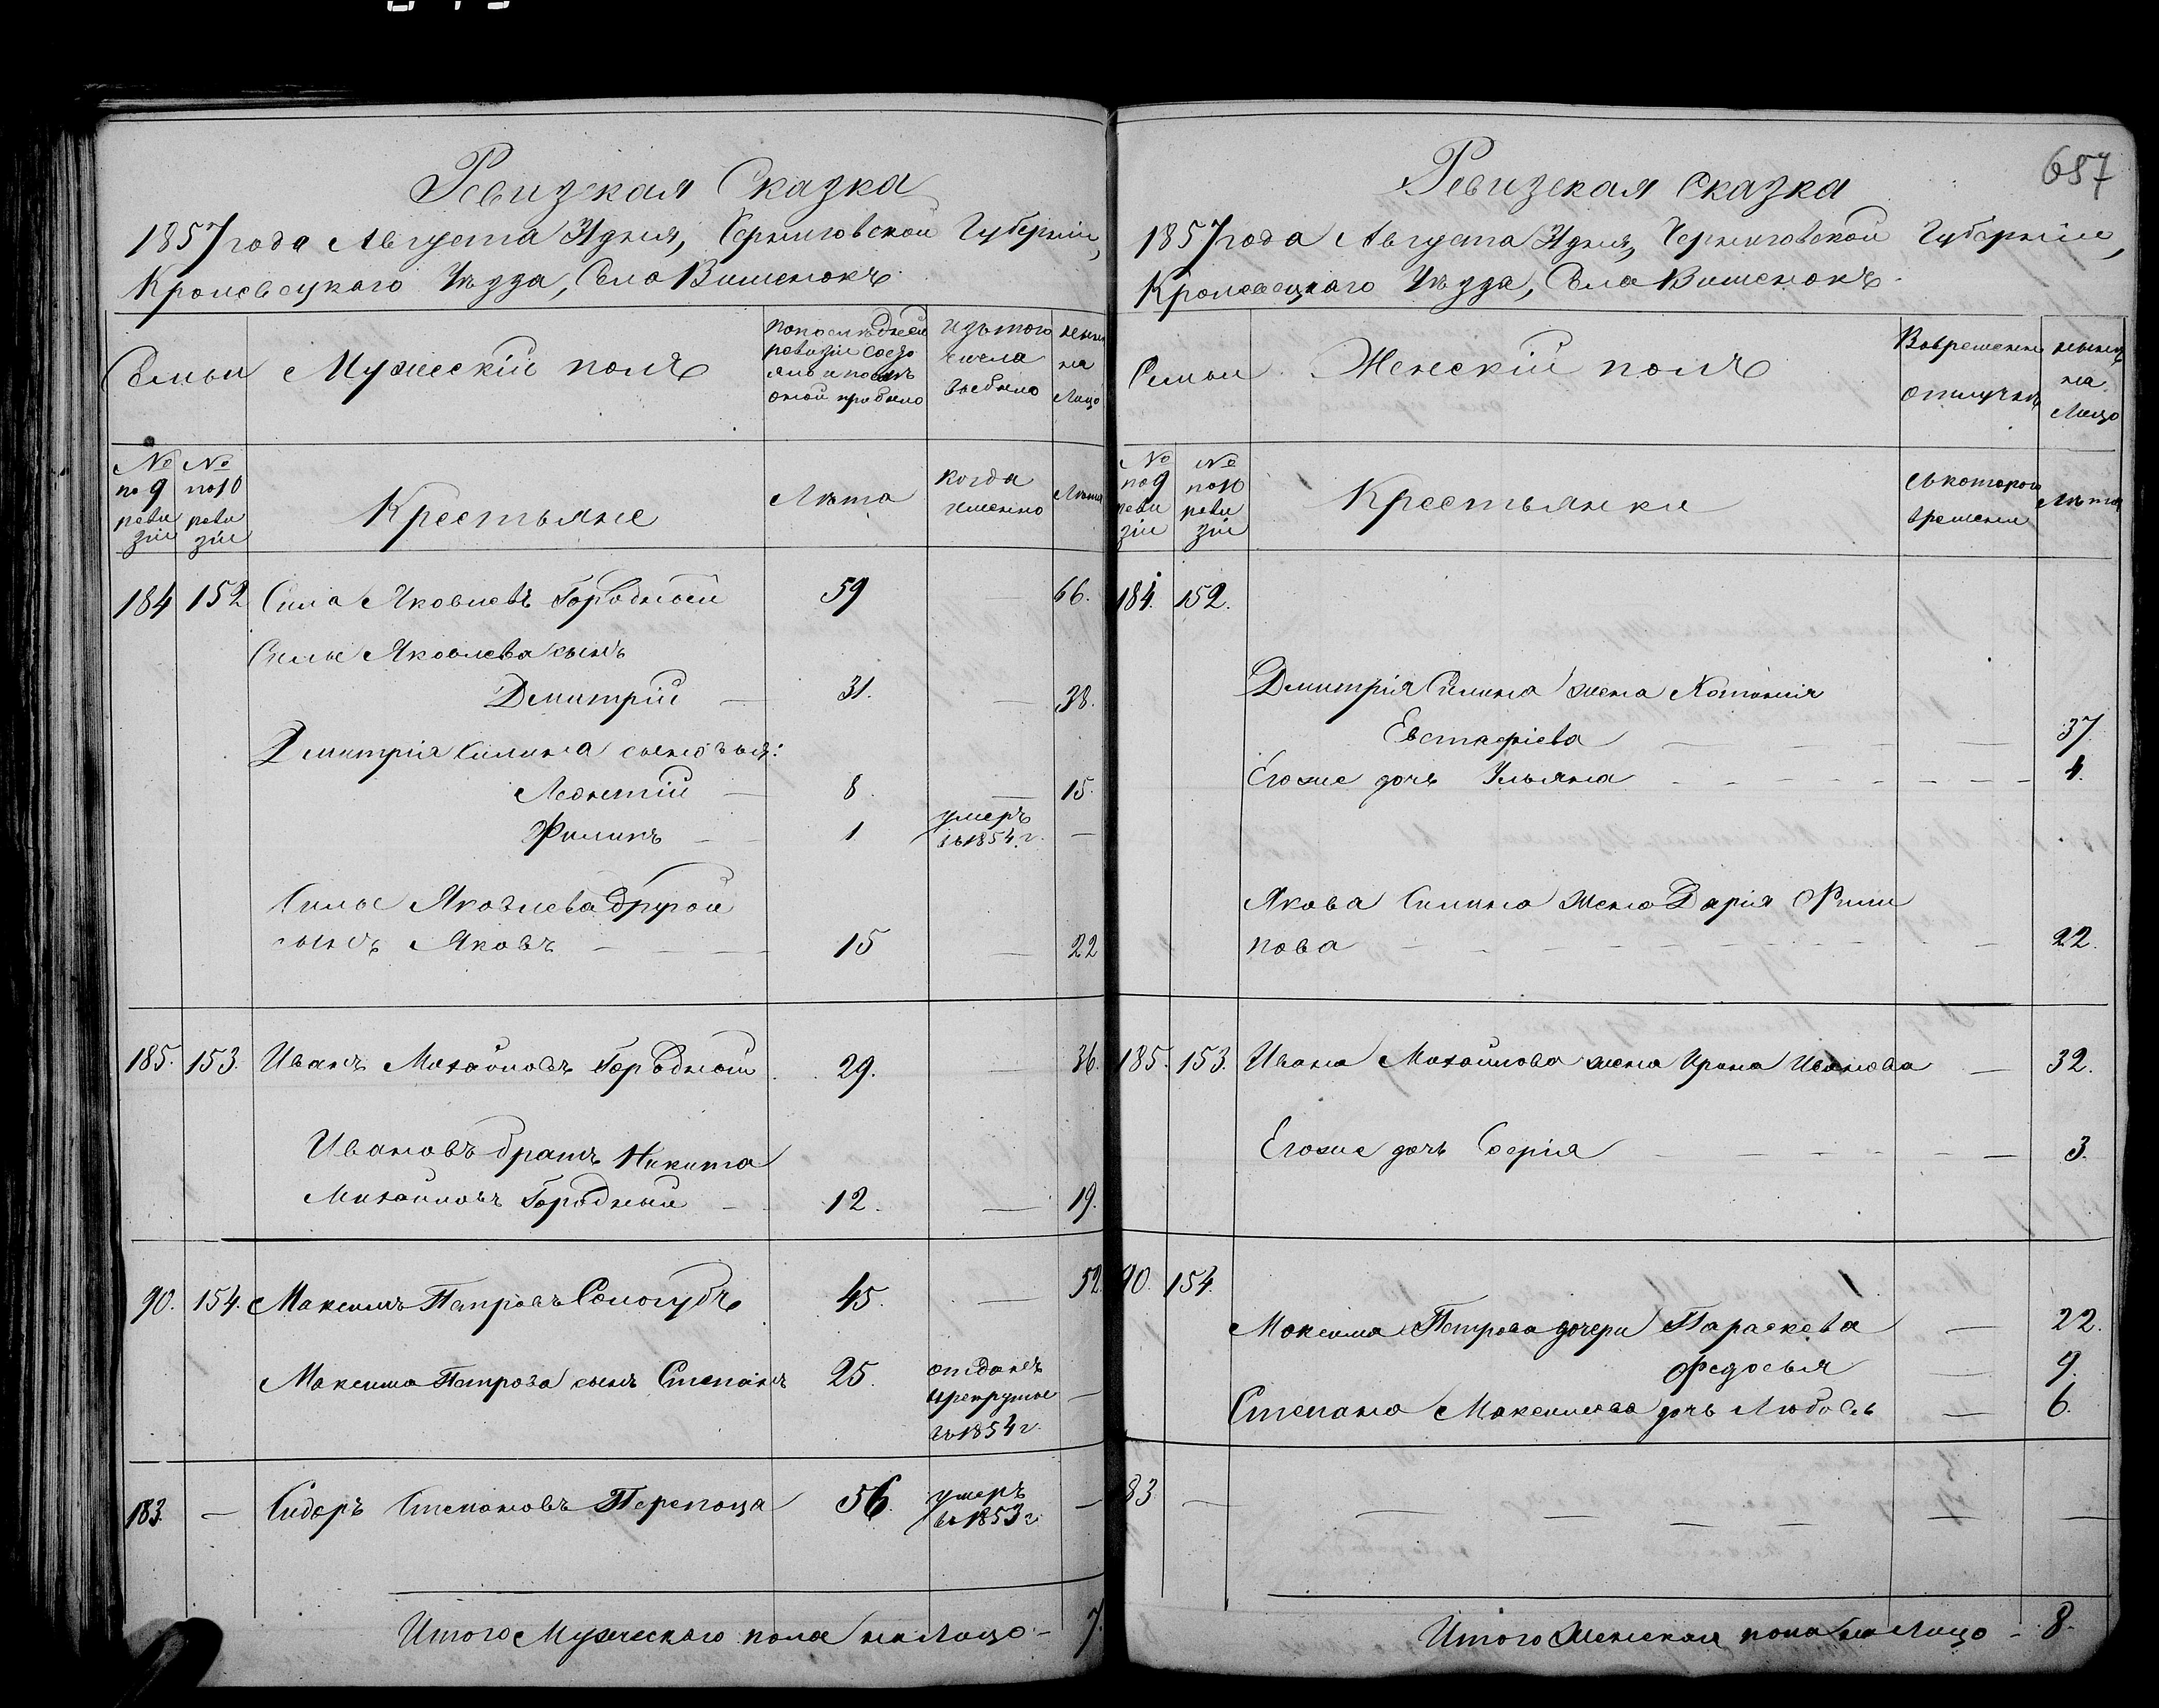 Ревизкая Сказка
1857 года Августа дня, Черниговской Губерніи,
Кролевецкаго Уѣзда, Села Вишенокъ
Семьи
Мужескій полъ
по последней
ревизіи состо
яло и после
оной прибыло
изъ того
числа
выбыло
ныне
на
Лицо
№
по 9
реви
зіи
№
по 10
реви
зіи
Крестьяне
Лѣта
когда
именно
Лѣта
184 152 Сила Яковлевъ Городной 59 — 66.
Силы Яковлева сынъ
Дмитрій — 31. — 38.
Дмитрія Силина сыновья:
Леонтій — 8. — 15.
Филипъ — 1 умеръ —
въ 1854 г.
Силы Яковлева другой
сынъ Яковъ — 15 — 22
185. 153. Иванъ Михайловъ Городной 29. — 36.
Ивановъ братъ Никита
Михайловъ Городный — 12. — 19.
90. 154. Максимъ Петровъ Сологубъ 45. — 52
Максима Петрова сынъ Степанъ 25. отданъ
в рекруты —
въ 1854 г.
183. — Сидоръ Степановъ Перепоца 56. умеръ —
въ 1853 г.
Итого Мужескаго пола на Лицо — 7.
657
Ревизская Сказка
1857 года Августа дня, Черниговской Губерніи,
Кролевецкаго Уѣзда, Села Вишенокъ
Семьи
Женскій полъ
Вовременной
отлучкѣ
ныне
на
Лицо
№
по 9
реви
зіи
№
по 10
реви
зіи
Крестьянки
съ котораго
времени
Лѣта
184. 152.
Дмитрія Силина жена
Евстафіева — 37
Егоже дочь Ульяна — 4.
Якова Силина жена Дарія Фили
пова — 22.
185. 153. Ивана Михайлова жена Ирина Иванова — 32.
Егоже дочь Софія — 3.
90. 154.
Максима Петрова дочери Параскева — 22.
Федосья — 9.
Степана Максимова дочь Любовь — 6.
83 — — — — — — —
Итого Женскаго пола на Лицо — 8.